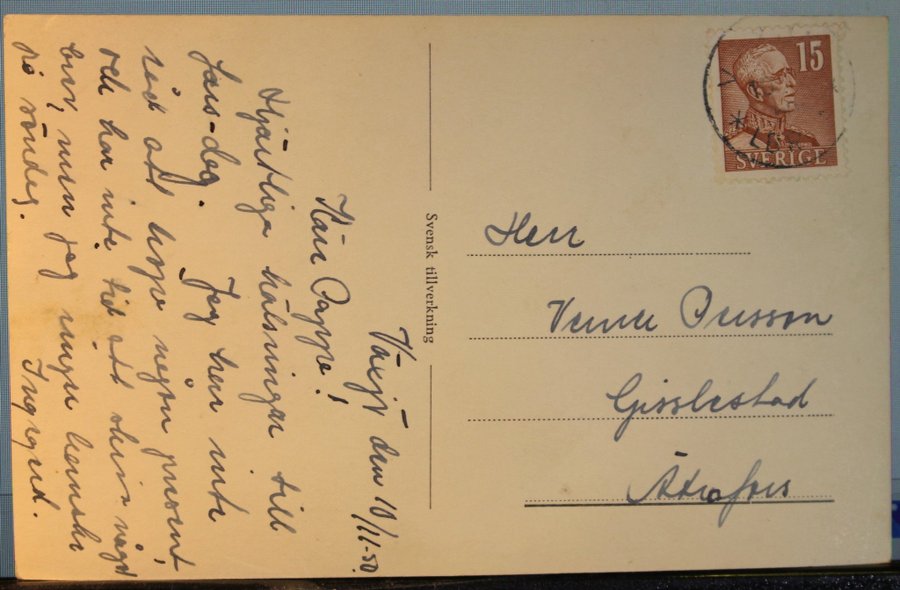 Växjö den 10/11-50
Kära Pappa!
Hjärtliga hälsningar till
fars-dag. Jag har inte
råd att köpa någon present,
och har inte tid att skriva något
brev, men jag ringer kanske
på söndag.
Ingegerd.
Svensk tillverkning
15
SVERIGE
Herr
Verner Persson
Gisslestad
Ätrafors